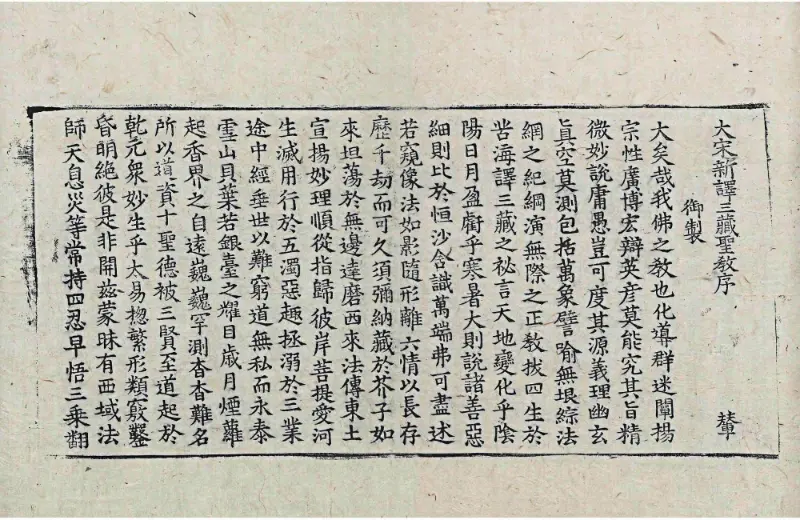 大宋新譯三藏聖教序　輦
御製
大矣哉我佛之教也化導群迷闡揚
宗性廣博宏辯英彥莫能究其旨精
微妙說庸愚豈可度其源義理幽玄
眞空莫測包括萬象譬喻無垠綜法
網之紀綱演無際之正教拔四生於
苦海譯三藏之祕言天地變化乎陰
陽日月盈虧乎寒暑大則說諸善惡
細則比於恒沙含識萬端弗可盡述
若窺像法如影隨形離六情以長存
歷千劫而可久須彌納藏於芥子如
來坦蕩於無邊達磨西來法傳東土
宣揚妙理順從指歸彼岸菩提愛河
生滅用行於五濁惡趣拯溺於三業
途中經垂世以難窮道無私而永泰
雪山貝葉若銀臺之耀目歲月煙蘿
起香界之自遠巍巍罕測杳杳難名
所以道資十聖德被三賢至道起於
乾元眾妙生乎太易揔繁形類竅鑿
昏明絕彼是非開茲蒙昧有西域法
師天息災等常持四忍早悟三乘翻